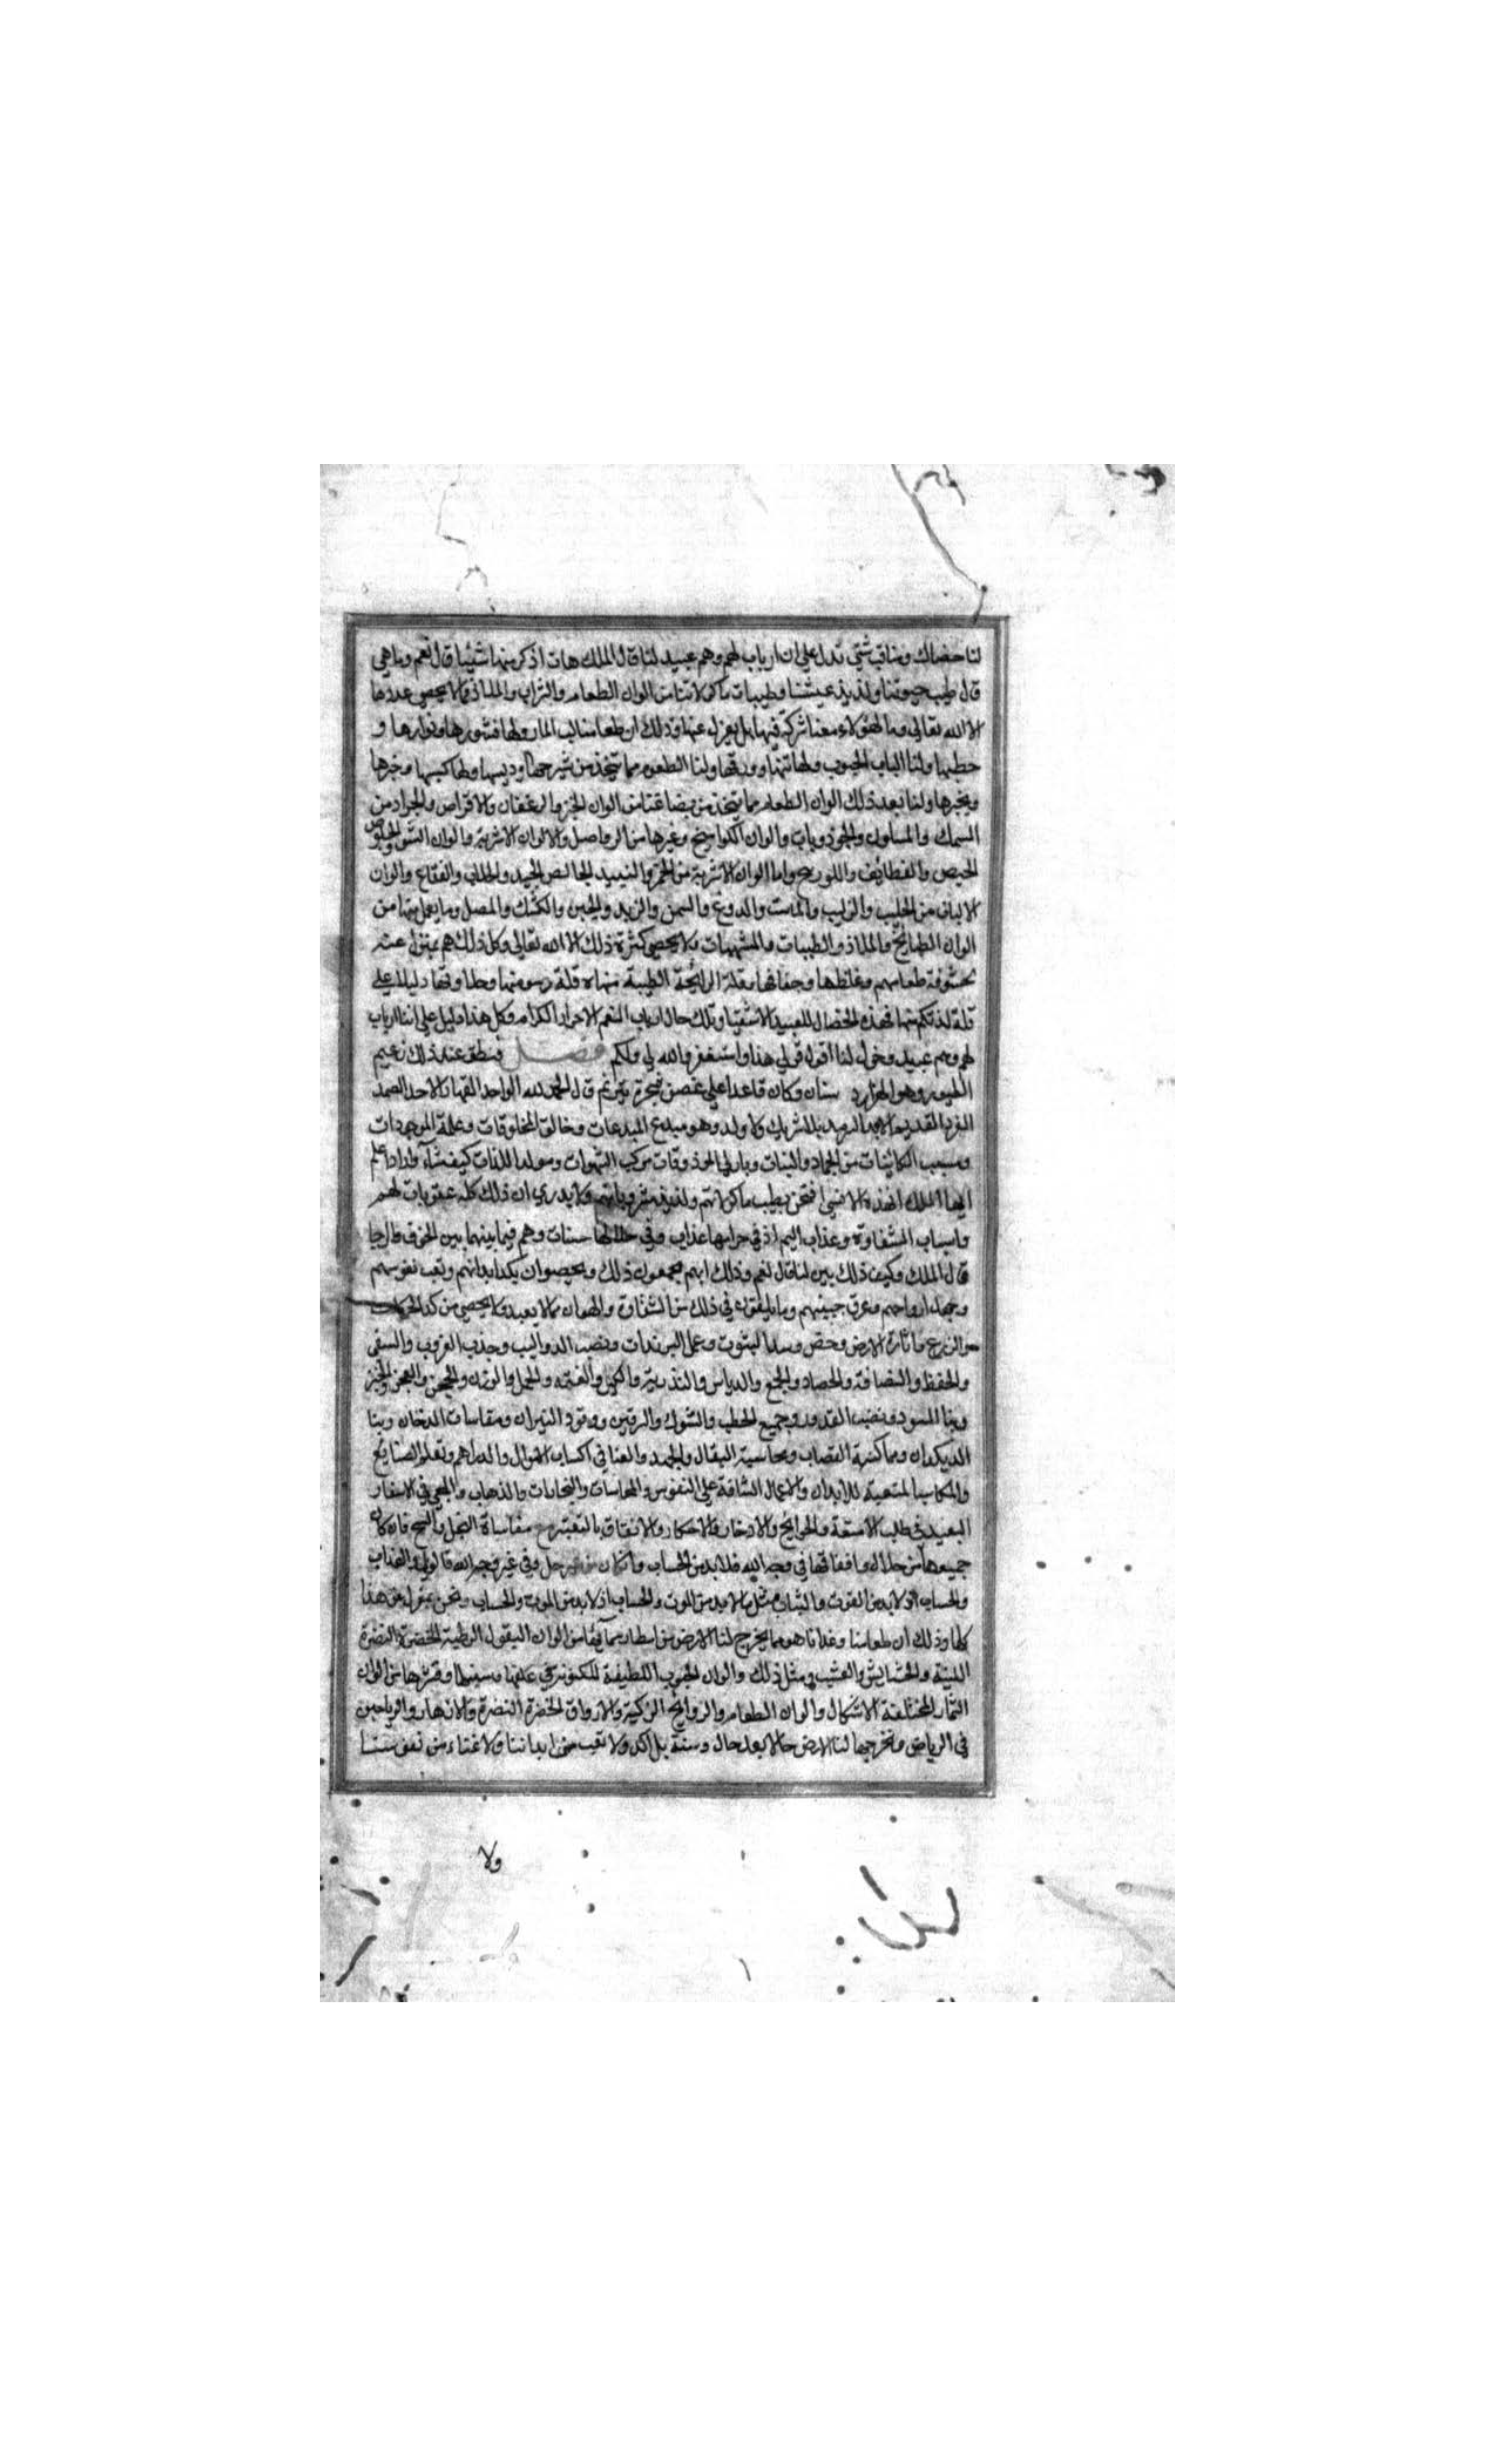 لنا خصال ومناقب شتي تدل علي ان ارباب لهم وهم عبيد لنا قال الملك هات اذكر منها شيئا قال نعم وما هي
قال طيب حيوتنا ولذيذ عيشنا وطيبات ماكولاتنا من الوان الطعام والشراب والملاذ مما لا يحصي عددها
الا الله تعالي وما لهؤلاء معنا شركة فيها بل بمعزل عنها وذلك ان طعامنا لب الثمار ولها قشورها ونوارها و
حطبها ولنا الباب الحبوب ولها تبنها وورقها ولنا الطعوم مما يتخذ من شيرجها ودبسها ولها كسبها وخرها
ولنا بعد ذلك الوان الطعام مما يتخذ من الوان الخبز والرغفان والاقراص والجرادم من
السمك والجوذوبات والوان الكواميخ وغيرها من والالوان الاشربة والوان الشوي والحلوي
الخبيص والقطائف واللوزينج واما الوان الاشربة من الخمر والنبيذ الخالص الجيد والجلاب والفقاع والوان
الالبان من الحليب والرايب والماست والدوغ والسمن والزبد والجبن والكشك والمصل وما يعمل منها من
الوان الطبائخ والملاذ والطيبات والمشهيات ولا يحصي كثرة ذلك الا الله تعالي وكل ذلك هم بمعزل عنه
خشونة طعامهم وغلظها وجفافها وقلة الرائحة الطيبة منها قلة دسومتها وحلاوتها دليلا علي
قلة لذتكم منها فهذه الخصال للعبيد الاشقيا وتلك حال ارباب النعم الاحرار الكرام وكل هذا دليل علي اننا ارباب
لهم وهم عبيد وخول لنا اقول قولي هذا واستغفر الله لي ولكم فصل فنطق عند ذلك زعيم
الطيور وهو الهزار دستان وكان قاعدا علي غصن شجرة يترنم قال الحمد لله الواحد القهار الاحد الصمد
الفرد القديم الابد السرمد بلا شريك ولا ولد وهو مبدع المبدعات وخالق المخلوقات وعلة الموجودات
ومسبب الكائنات من الجماد والنبات وباري مركب الشهوات ومولد اللذات كيف شاء واراد اعلم
ايها الملك ان هذا الانسي افتخر بطيب ماكولاتهم ولذيذ مشروباتهم ولا يدري ان ذلك كله عقوبات لهم
واسباب الشقاوة وعذاب اليم اذ في حرامها عذاب وفي حلالها حساب وهم فيما بينهما بين الخوف والرجا
قال الملك وكيف ذلك بين لنا قال نعم وذلك انهم يجمعون ذلك بكد ابدانهم وتعب نفوسهم
وجهد ارواحهم وعرق جبينهم وما يلقون في ذلك من الشقاوة والهوان مما لا يعد ولا يحصي من كد
الزرع واثارة الارض وحفر وسد البثوق وعمل البرندات ونصب الدواليب وجذب الغروب والسقي
والحفظ والحصاد والجمع والدياس والتذرية والكيل والقسمة والحمل والوزن والطحن والعجن والخبز
وبنا ونصب القدور وجميع الحطب والشوك والسرقين ووقود النيران ومقاسات الدخان وبنا
الديكدان ومماكسة القصاب ومحاسبة البقال والجهد والعنا في اكساب الاموال والدراهم وتعلم الصنائع
والمكاسب المتعبة للابدان والاعمال الشاقة علي النفوس والمحاسبات والتجارات والذهاب والمجي في الاسفار
البعيد في طلب الامتعة والحوائج والادخار والاحتكار والانفاق بالتقتير مع مقاساة البخل والشح فان كان
جميعها من حلال وانفاقها في وجه الله فلا بد من الحساب وان كان من غير حل وفي غير وجه الله فالويل والعذاب
والحساب لا بد من الموت والحساب اذ لا بد من الموت والحساب ونحن بمعزل من هذا
كلها وذلك ان طعامنا وغذانا هو مما يخرج لنا الارض من امطار سمائها من الوان البقول الرطبة الخضرة النضرة
اللينة والحشائش والعشب ومثل ذلك والوان الحبوب اللطيفة المكنونة في غلفها وسنبلها وقشرها من الوان
الثمار المختلفة الاشكال والوان الطعام والروايح الزكية والاوراق الخضرة النضرة والازهار والرياحين
في الرياض وتخرجها لنا الارض حالا بعد حال وسنة بلا كد ولا تعب من ابداننا ولا عناء من نفوسنا
ولا